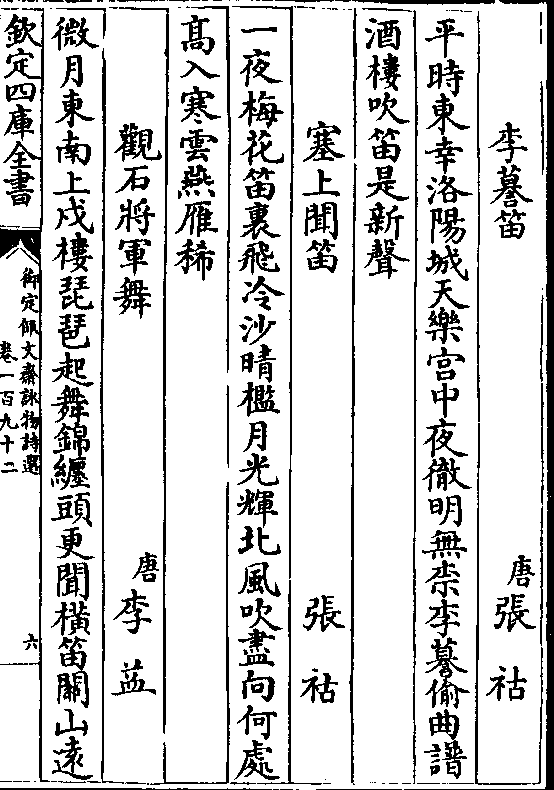 李謩笛
唐張祜
平時東幸洛陽城天樂宫中夜徹明無柰李謩偷曲譜
酒樓吹笛是新聲
塞上聞笛
張祜
一夜梅花笛裏飛冷沙晴檻月光輝北風吹盡向何處
髙入寒雲燕雁稀
觀石將軍舞
唐李益
微月東南上戍樓琵琶起舞錦纏頭更聞横笛關山遠
欽定四庫全書
御定佩文齋詠物詩選
卷一百九十二
六